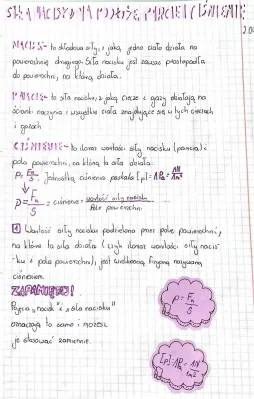 SIŁA NACISKU NA PODŁOŻE, PARCIE I CIŚNIENIE
NACISK - to składowa siły, z jaką jedno ciało działa na
powierzchnię drugiego. Siła nacisku jest zawsze prostopadła
do powierzchni, na którą działa.
PARCIE - to siła nacisku, z jaką ciecze i gazy działają na
ścianki naczynia i wszystkie ciała znajdujące się w tych cieczach
i gazach
CIŚNIENIE - to iloraz wartości siły nacisku (parcia) i
pola powierzchni, na którą ta siła działa.
p = Fn/S Jednostką ciśnienia paskala [p] = 1Pa = 1N/1m²
p = Fn/S = ciśnienie = wartość siły nacisku / Pole powierzchni
1 Wartość siły nacisku podzielona przez pole powierzchni,
na które ta siła działa (czyli iloraz wartości siły nacis
-ku i pola powierzchni), jest wielkością fizyczną nazywaną
ciśnieniem.
ZAPAMIĘTAJ!
Pojęcia „nacisk" i „siła nacisku"
oznaczają to samo i możesz
je stosować zamiennie.
p = Fn/S
[p] = 1Pa = 1N/1m²